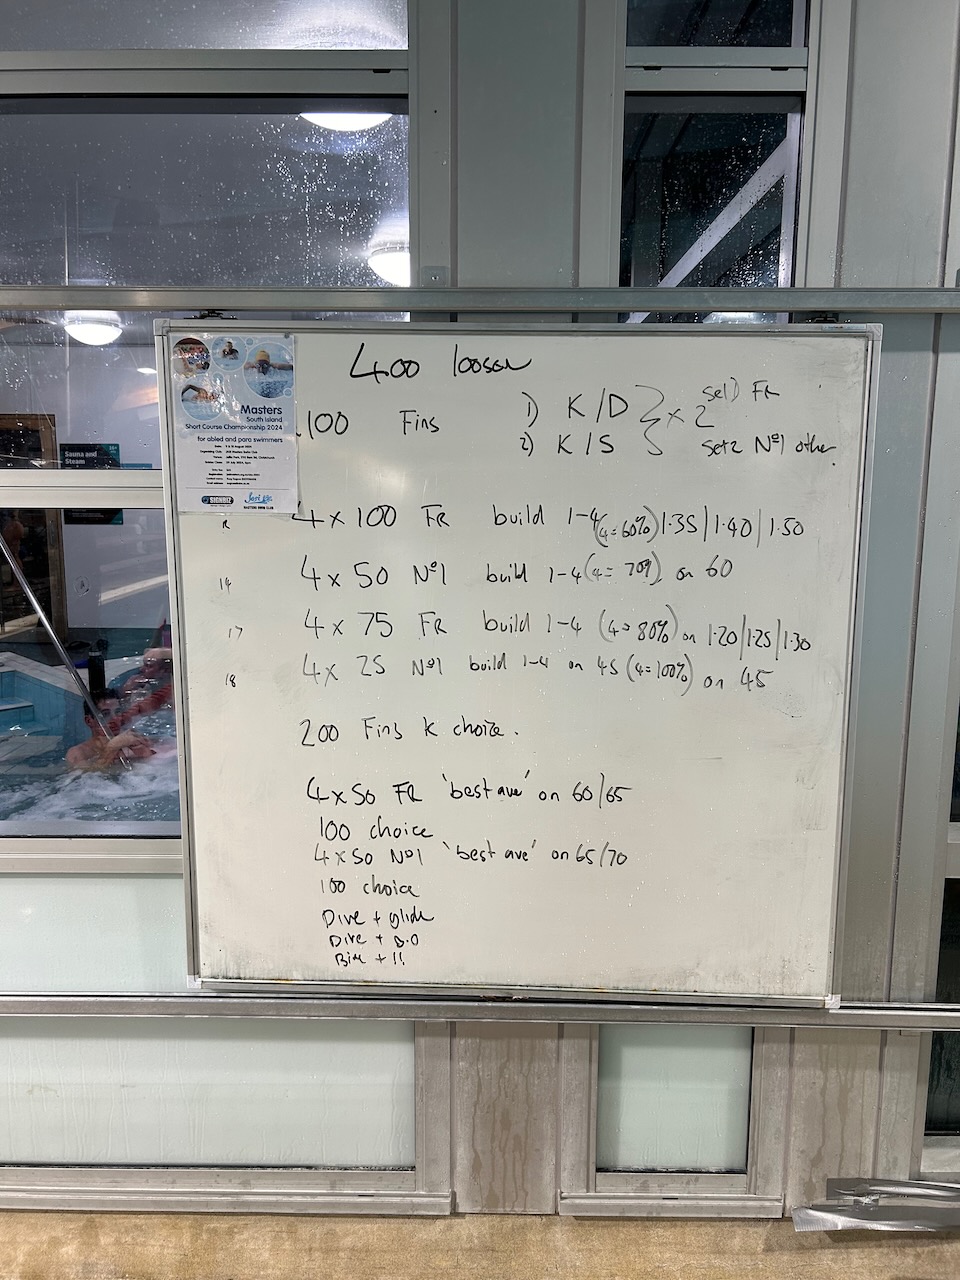 Masters
South Island
Short Course Championship 2024
for abled and para swimmers
SIGNBIZ
Sauna and
Steam
400 loosen
100 Fins 1) K/D } x 2 set 1) FR
2) K/S set 2 Nº1 other
4 x 100 FR build 1-4 (4=60%) 1.35|1.40|1.50
14 4 x 50 Nº1 build 1-4 (4= 70%) on 60
17 4 x 75 FR build 1-4 (4=80%) on 1.20|1.25|1.30
18 4 x 25 Nº1 build 1-4 on 45 (4=100%) on 45
200 Fins K choice.
4 x 50 FR 'best ave' on 60/65
100 choice
4 x 50 Nº1 'best ave' on 65/70
100 choice
Dive + glide
Dive + B.O
+ !!